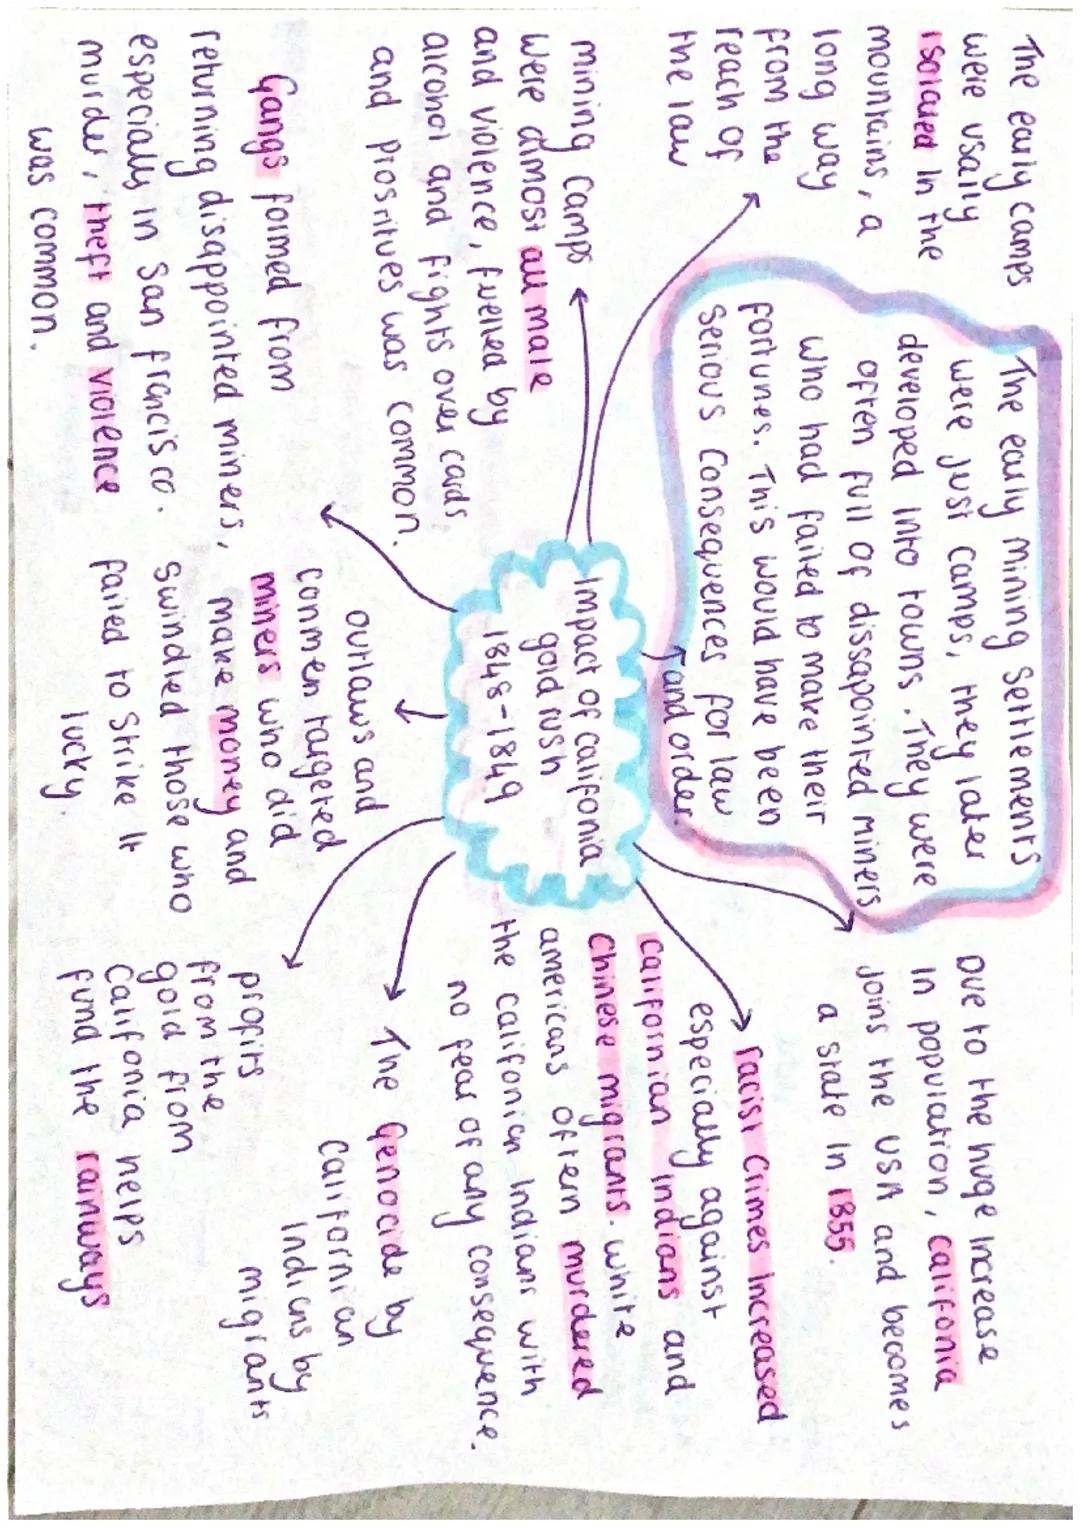 The early camps
were usally
isolated in the
mountains, a
long way
from the
reach of
the law
The early mining settlements
were just camps, they later
developed into towns. They were
often full of disappointed miners
who had failed to make their
fortunes. This would have been
serious consequences for law
and order.
Due to the huge increase
in population, califonia
joins the USA and becomes
a state in 1855.
mining camps
were almost all male
and violence, fuelled by
alcohol and fights over cards
and prositues was common.
Impact of califonia
gold rush
1848-1849
racist crimes increased
especially against
californian indians and
chinese migrants. white
americans oftern murdered
the califonian indians with
no fear of any consequence.
Gangs formed from
returning disappointed miners,
especially in san francisco.
murder, theft and violence
was common.
outlaws and
conmen targeted
miners who did
make money and
swindled those who
failed to strike it
lucky.
The genocide by
californian
indians by
migrants
profits
from the
gold from
Califonia helps
fund the railways